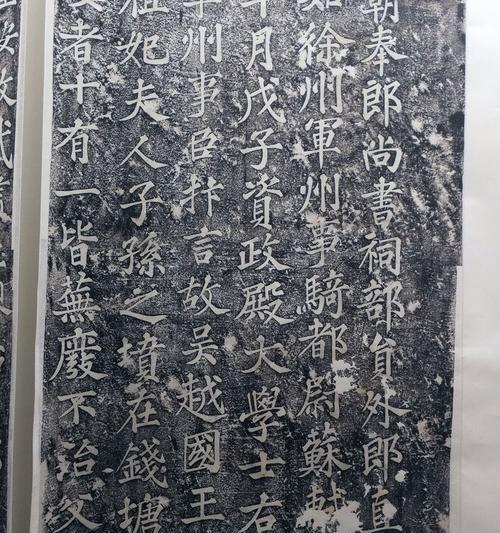 朝奉郎尚書祠部員外郎直
知徐州軍州事騎都尉蘇軾
十月戊子資政殿大學士右
軍州事臣抃言故吳越國王
祖妃夫人子孫之墳在錢塘
安者十有一皆蕪廢不治父